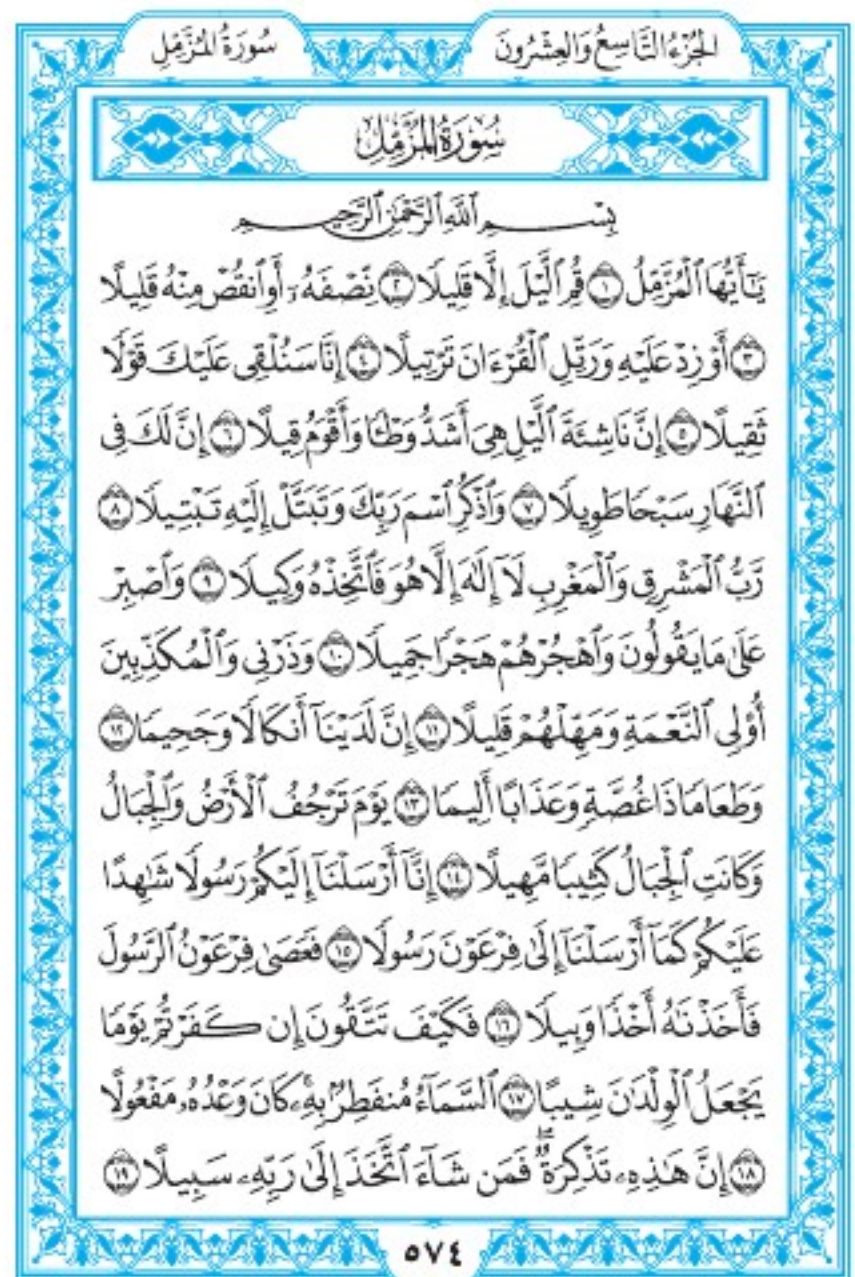 الجُزْءُ التَّاسِعُ وَالعِشْرُونَ
سُورَةُ المُزَّمِّلِ
سُورَةُ المُزَّمِّلِ
بِسْمِ ٱللَّهِ ٱلرَّحْمَٰنِ ٱلرَّحِيمِ
يَٰٓأَيُّهَا ٱلْمُزَّمِّلُ ١ قُمِ ٱلَّيْلَ إِلَّا قَلِيلًا ٢ نِّصْفَهُۥٓ أَوِ ٱنقُصْ مِنْهُ قَلِيلًا
٣ أَوْ زِدْ عَلَيْهِ وَرَتِّلِ ٱلْقُرْءَانَ تَرْتِيلًا ٤ إِنَّا سَنُلْقِى عَلَيْكَ قَوْلًا
ثَقِيلًا ٥ إِنَّ نَاشِئَةَ ٱلَّيْلِ هِىَ أَشَدُّ وَطْـًٔا وَأَقْوَمُ قِيلًا ٦ إِنَّ لَكَ فِى
ٱلنَّهَارِ سَبْحًا طَوِيلًا ٧ وَٱذْكُرِ ٱسْمَ رَبِّكَ وَتَبَتَّلْ إِلَيْهِ تَبْتِيلًا ٨
رَّبُّ ٱلْمَشْرِقِ وَٱلْمَغْرِبِ لَآ إِلَٰهَ إِلَّا هُوَ فَٱتَّخِذْهُ وَكِيلًا ٩ وَٱصْبِرْ
عَلَىٰ مَا يَقُولُونَ وَٱهْجُرْهُمْ هَجْرًا جَمِيلًا ١٠ وَذَرْنِى وَٱلْمُكَذِّبِينَ
أُو۟لِى ٱلنَّعْمَةِ وَمَهِّلْهُمْ قَلِيلًا ١١ إِنَّ لَدَيْنَآ أَنكَالًا وَجَحِيمًا ١٢
وَطَعَامًا ذَا غُصَّةٍ وَعَذَابًا أَلِيمًا ١٣ يَوْمَ تَرْجُفُ ٱلْأَرْضُ وَٱلْجِبَالُ
وَكَانَتِ ٱلْجِبَالُ كَثِيبًا مَّهِيلًا ١٤ إِنَّآ أَرْسَلْنَآ إِلَيْكُمْ رَسُولًا شَٰهِدًا
عَلَيْكُمْ كَمَآ أَرْسَلْنَآ إِلَىٰ فِرْعَوْنَ رَسُولًا ١٥ فَعَصَىٰ فِرْعَوْنُ ٱلرَّسُولَ
فَأَخَذْنَٰهُ أَخْذًا وَبِيلًا ١٦ فَكَيْفَ تَتَّقُونَ إِن كَفَرْتُمْ يَوْمًا
يَجْعَلُ ٱلْوِلْدَٰنَ شِيبًا ١٧ ٱلسَّمَآءُ مُنفَطِرٌۢ بِهِۦۚ كَانَ وَعْدُهُۥ مَفْعُولًا
١٨ إِنَّ هَٰذِهِۦ تَذْكِرَةٌۖ فَمَن شَآءَ ٱتَّخَذَ إِلَىٰ رَبِّهِۦ سَبِيلًا ١٩
٥٧٤